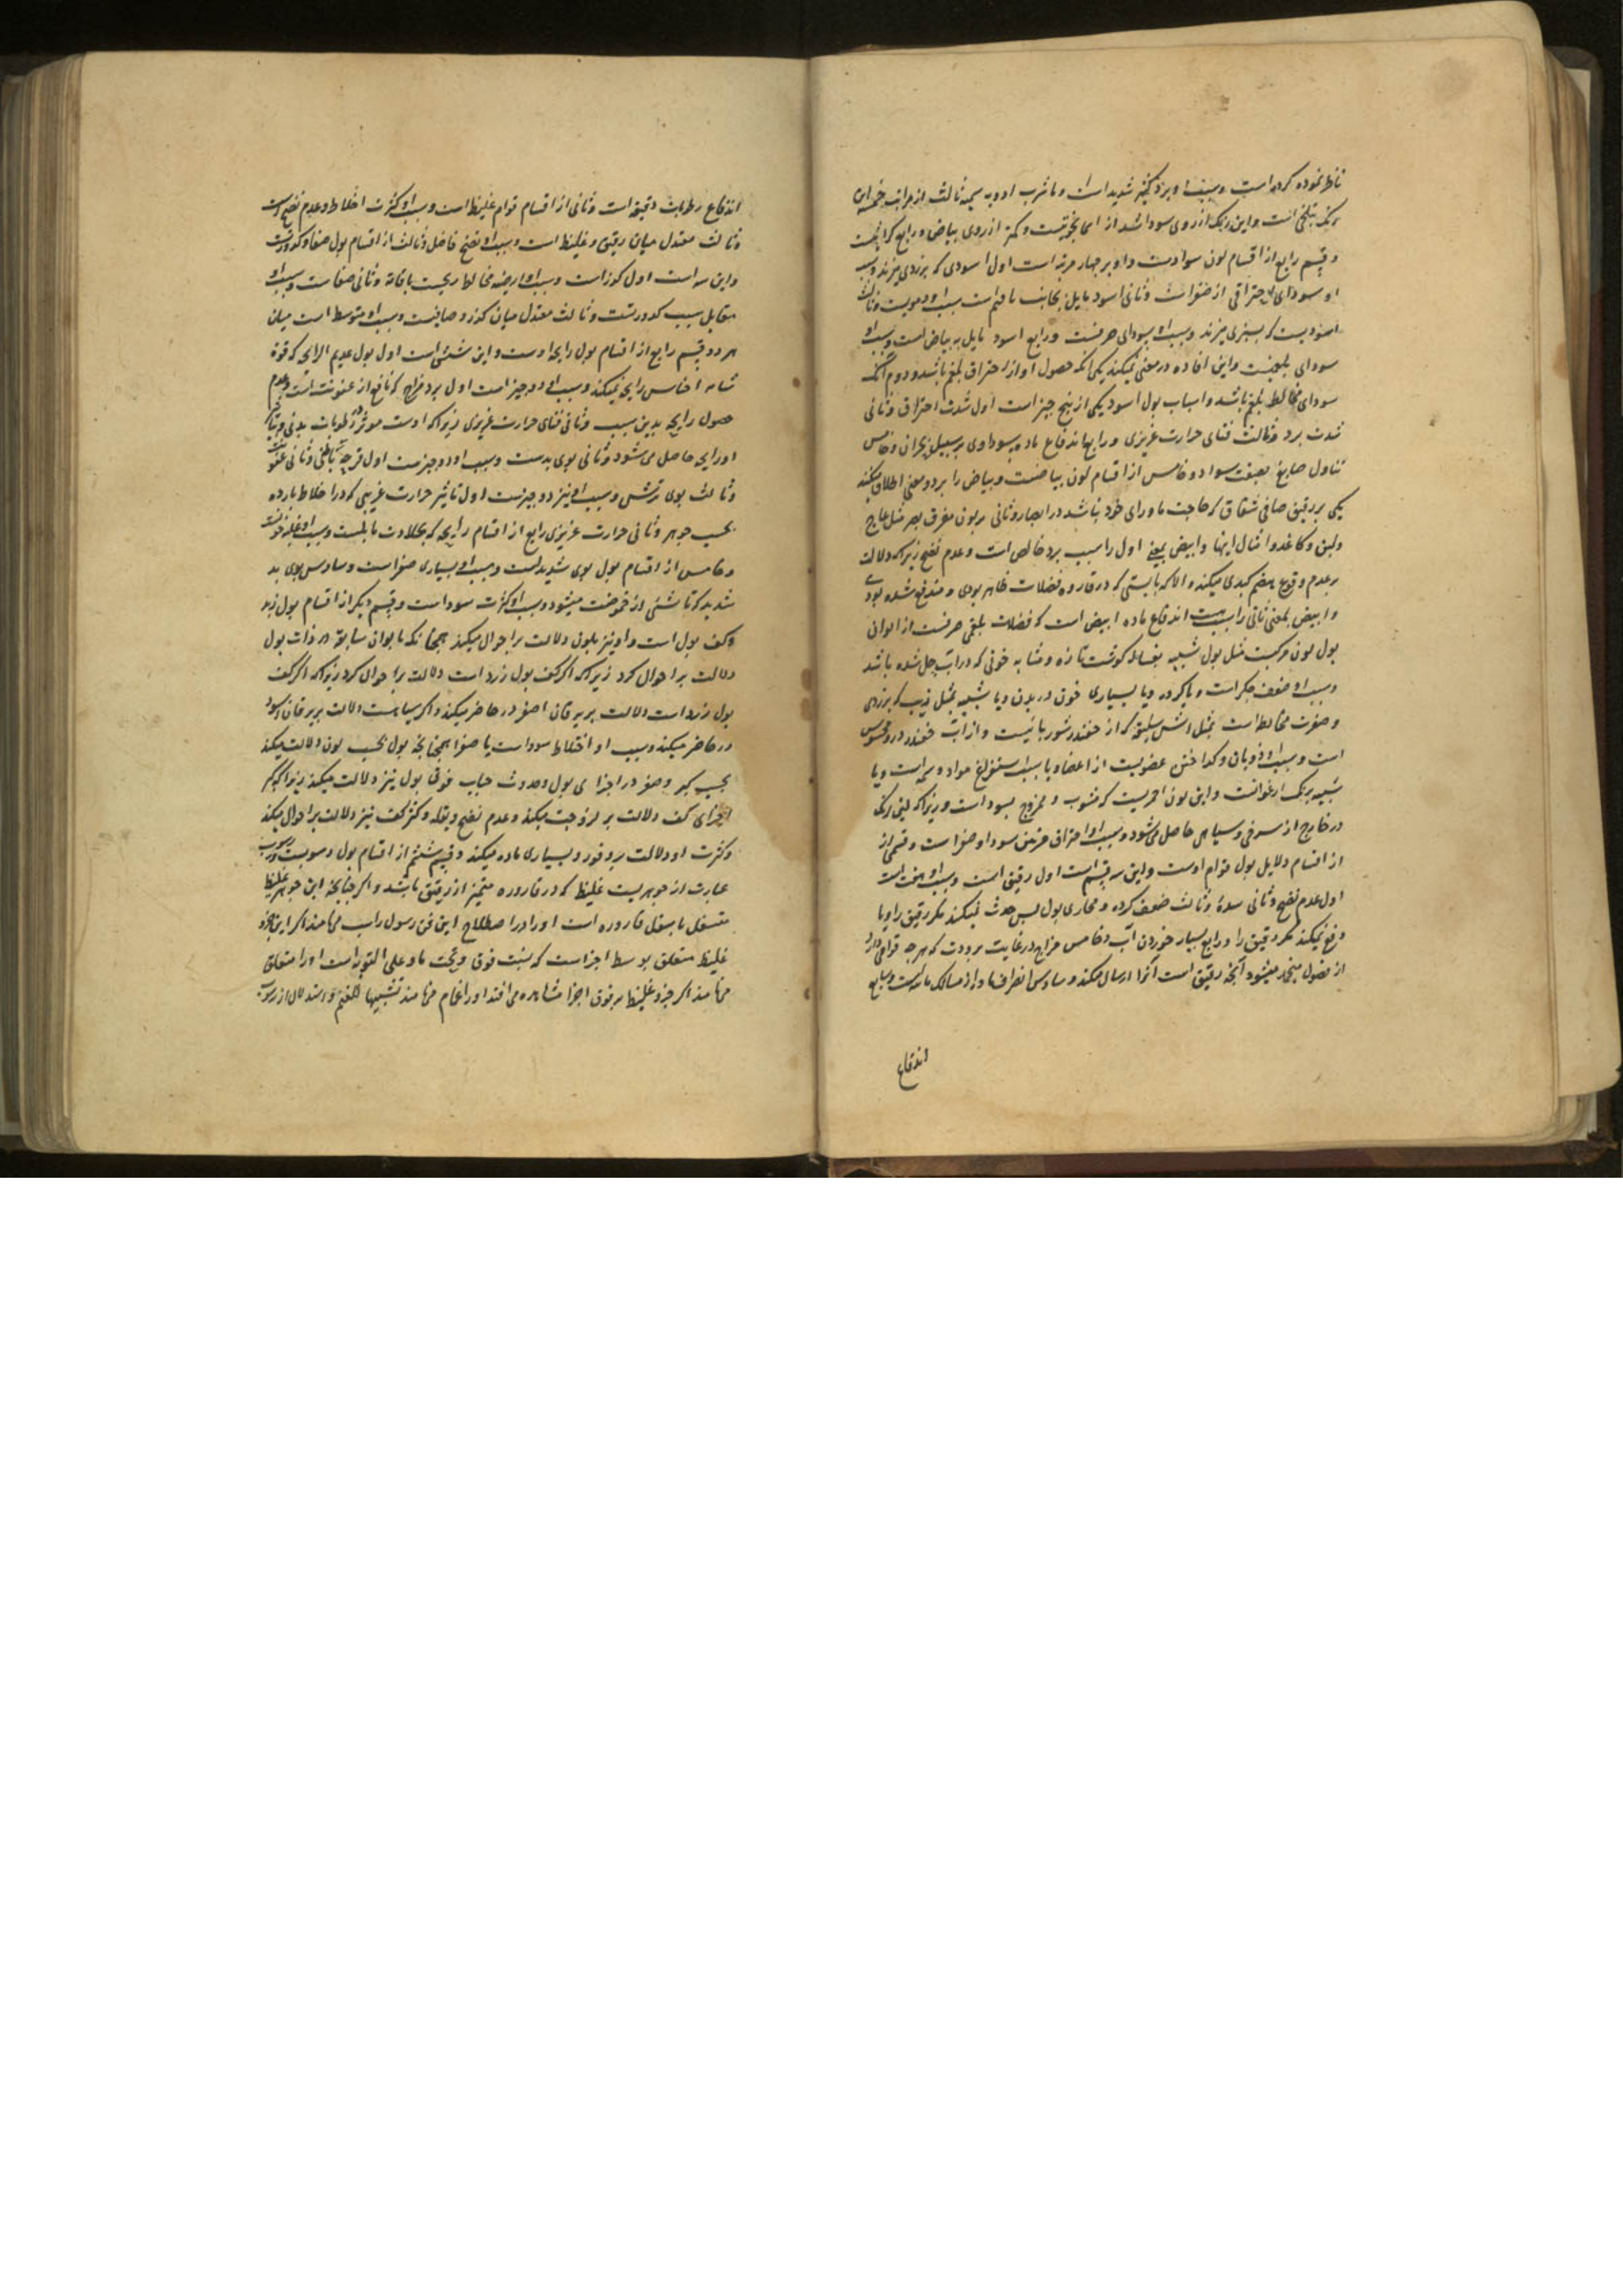 ناظر نموده کرده است وسبب او برد کثیر شدید است و یا شرب ادویه سمیه ثالث از مراتب خمسه این
رنگ نیلنجی است واین رنگ از روی سواد اشد از اسمانجونیست وکمتر از روی بیاض و رابع کراثیست
وقسم رابع از اقسام لون سوادست واو بر چهار مرتبه است اول اسودی که بزردی میزند وسبب
او سودای احتراقی از صفراست وثانی اسود مایل بجانب اقتم است سبب او دمویست وثالث
اسودیست که بسبزی میزند وسبب او سودای صرفست ورابع اسود مایل به بیاض است وسبب او
سودای بلغمیست واین افاده دو معنی میکند یکی انکه حصول او از احتراق بلغم باشد ودوم آنکه
سودای مخالط بلغم باشد واسباب بول اسود یکی از پنج چیز است اول شدت احتراق وثانی
شدت برد وثالث فنای حرارت غریزی ورابع اندفاع ماده سوداوی بر سبیل بحران وخامس
تناول صابغ بصبغت سواد وخامس از اقسام لون بیاضست وبیاض را بر دو معنی اطلاق میکنند
یکی بر رقیق صافی شفاف که حاجب ماورای خود نباشد در ابصار وثانی بر لون مفرق بصر مثل عاج
ولبن وکاغذ وامثال اینها وابیض بمعنی اول را سبب برد خالص است وعدم نضج زیراکه دلالت
بر عدم وقوع هضم کبدی میکند والا که بایستی که در قاروره فضلات ظاهر بودی ومندفع شده بودی
وابیض بمعنی ثانی را سبب اندفاع ماده ابیض است که فضلات بلغمی صرفست از الوان
بول لون مرکبست مثل بول شبیه بغساله گوشت تازه ومشابه خونی که در آب حل شده باشد
وسبب او ضعف جگر است ویا گرده ویا بسیاری خون در بدن ویا شبیه بمثل زیت که بزردی
وصفرت مخالط است بمثل
است وسبب او ذوبان وگداختن عضویست از اعضا ویا سبب استفراغ مواد دسمه است ویا
شبیه برنگ ارغوانست واین لون احمریست که مشوب وممزوج بسواد است وزیراکه
در خارج از سرخی وسیاهی حاصل میشود وسبب او احتراق مرتین سودا وصفرا است وقسمی از
از اقسام دلایل بول قوام اوست واین سه قسم است اول رقیق است وسبب او هفت است
اول عدم نضج وثانی سده وثالث ضعف گرده ومجاری بول پس حدث نمیکند مگر رقیق را ویا
دفع نمیکند مگر رقیق را ورابع بسیار خوردن آب وخامس مزاج در غایت برودت که هر چه قوامی دارد
از فضول منجمد میشود آنچه رقیق است آنرا ارسال میکند وسادس انصراف ماده از مسالک ماییست وسابع
اندفاع
اندفاع رطوبات رقیقه است وثانی از اقسام قوام غلیظ است وسبب او کثرت اخلاط وعدم نضج است
وثالث معتدل میان رقیق وغلیظ است وسبب او نضج فاضل وثالث از اقسام بول صفا وکدورتست
واین سه است اول کدر است وسبب او ارضیه مخالط ریحیت بامائه وثانی صفاست وسبب او
مقابل سبب کدورتست وثالث معتدل میان کدر وصافیست وسبب او متوسط است میان
هر دو وقسم رابع از اقسام بول رایحه اوست واین شش است اول بول عدیم الرایحه که قوة
شامه احساس رایحه نمیکند وسبب او دو چیز است اول برد مزاج که مانع از عفونت است وعدم
حصول رایحه بدین سبب وثانی فنای حرارت غریزی زیراکه اوست موثر در رطوبات بدنی
او رایحه حاصل می شود وثانی بوی بدست وسبب او دو چیزست اول قرحه باطنی وثانی عفونت
وثالث بوی ترشی وسبب او نیز دو چیزست اول تاثیر حرارت غریبی که در اخلاط بارده
بحسب جوهر وثانی حرارت عزیزی رابع از اقسام رایحه که بحلاوت مایلست وسبب او غلبه خونست
وخامس از اقسام بول بوی شدیدست وسبب او بسیاری صفراست وسادس بوی بد
شدید که ناشی از حموضت میشود وسبب او کثرت سوداست وقسم دیگر از اقسام بول زبد
وکف بول است واو نیز بلون دلالت بر احوال میکند همچنانکه بالوان سابقه در ذات بول
دلالت بر احوال کرد زیراکه اگر کف بول زرد است دلالت بر احوال کرد زیراکه اگر کف
بول زرد است دلالت بر یرقان اصفر در حاضر میکند واگر سیاهست دلالت بر یرقان اسود
در حاضر میکند وسبب او اختلاط سوداست یا صفرا همچنانچه بول بحسب لون دلالت میکند
بحسب کبر وصغر در اجزای بول وحدوث حباب فوق بول نیز دلالت میکند زیراکه کبر
اجزای کف دلالت بر لزوجت میکند وعدم نضج وبقله وکثر کف نیز دلالت بر احوال میکند
وکثرت او دلالت بر وفور وبسیاری ماده میکند وقسم ششم از اقسام بول رسوبست ورسوب
عبارت از جوهریست غلیظ که در قاروره متمیز از رقیق باشد واگر چنانچه این جوهر غلیظ
متسفل باسفل قاروره است اورا در اصطلاح این فن رسول راسب می نامند اگر این جزو
غلیظ متعلق بوسط اجزاست که نسبت فوق وتحت ما وعلی السویه است اورا متعلق
می نامند اگر جزو غلیظ بر فوق اجزا مشاهده می افتد اورا غمام می نامند تشبیها للغیم واستدلال از رسوب